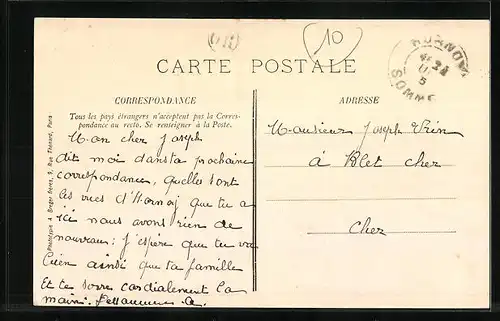 10
CARTE POSTALE
HORNOY
SOMME
CORRESPONDANCE
Tous les pays étrangers n'acceptent pas la Corres-
pondance au recto. Se renseigner à la Poste.
Mon cher Joseph
dit moi dans ta prochaine
correspondance, quelles sont
les vues d'Hornoy que tu a
ici nous avons rien de
nouveau; j'espère que tu va
bien ainsi que ta famille
Et te serre cordialement la
main.
Phototypie A. Breger frères, 9, Rue Thénard, Paris
ADRESSE
Monsieur Joseph
à Blet cher
Cher